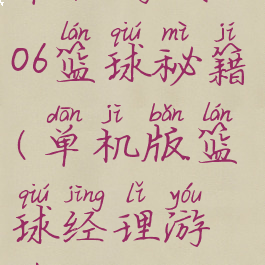 lán qiú mì jí
06篮球秘籍
dān jī bǎn lán
(单机版篮
qiú jīng lǐ yóu
球经理游